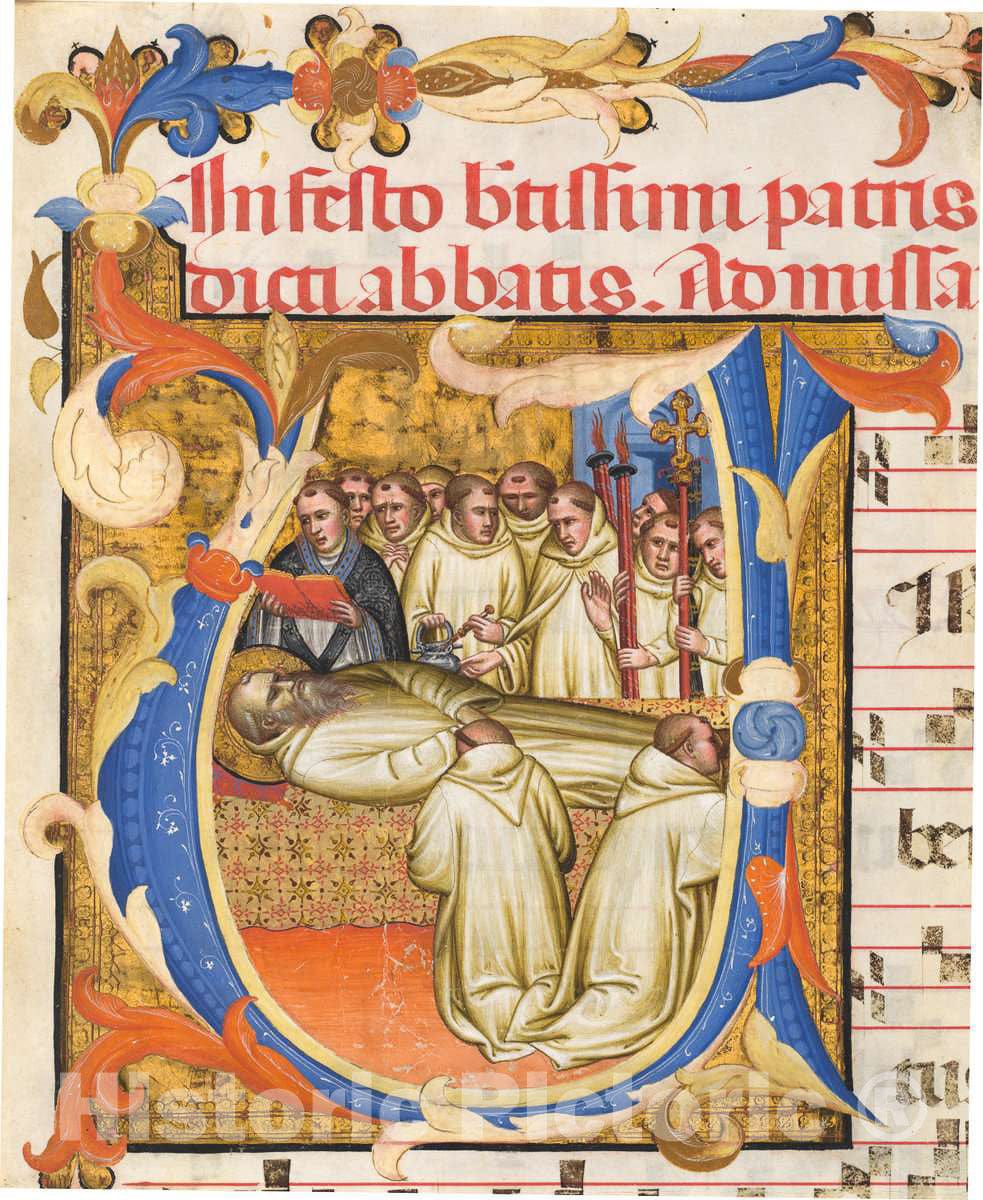 In festo b̅tissimi patris
dicti abbatis. Ad missa
be
tus
Historic Pictoric ®